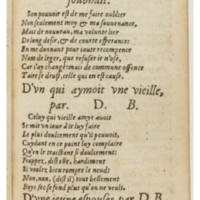 souhait.
Son pouvoir est de me faire oublier
Non seulement moy & ma souvenance,
Mais de nouveau, ma volunté lier
Du long desir, & de courte esperance:
En me donnant pour toute recompence
Nom de leger, que refuser ie n'ose,
Car l'ay changé mais de commune offense
Taire se deust, celle qui en est cause.
D'vn qui aymoit vne vieille,
par. D. B.
Celuy qui vieille amye avoit
Se mit vn iour à luy faire
Le plus doulcement qu'il pouvoit,
Cuydant en ce point luy complaire
Qu'en le traictant si doulcement:
Frappez, dist elle, hardiment
Si voulez bien rompre le neuds
Non, non, (dist il) tout bellement
Boys sec se fend plus qu'on ne veult.
D'vne ieune espousée, par D. B.